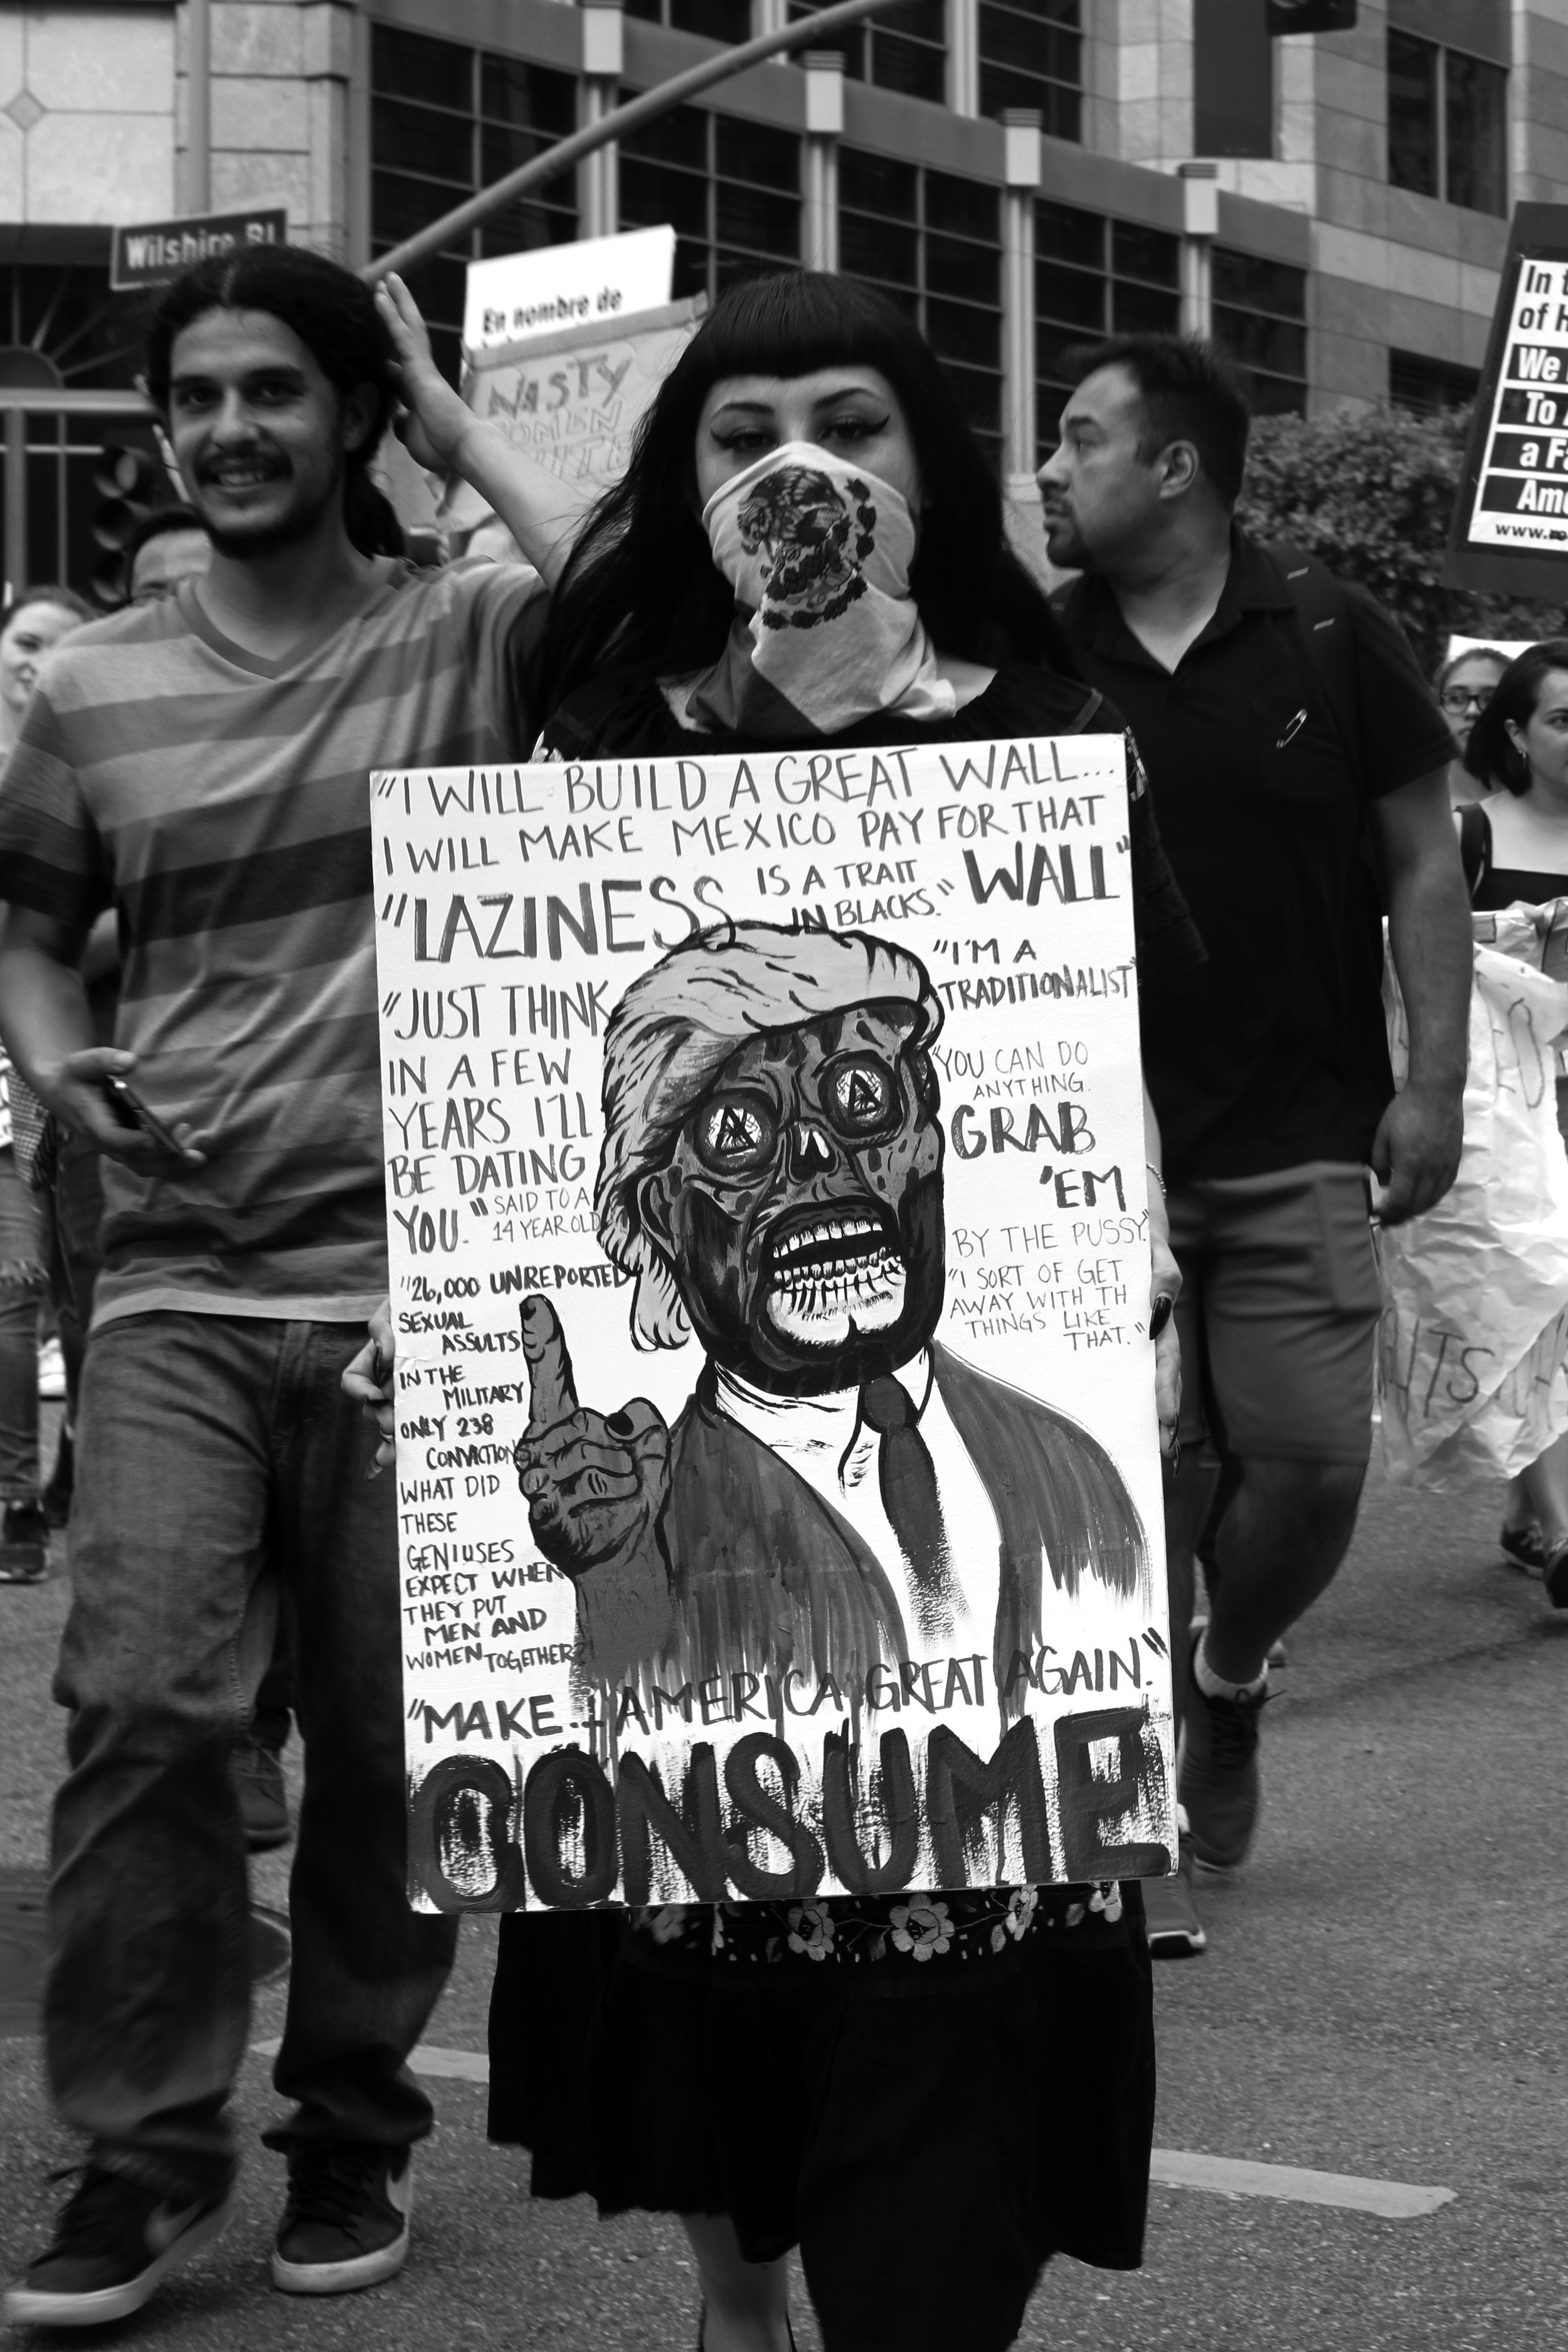 Wilshire Bl
En nombre de
NASTY
WOMEN
In t
of H
We
To
a Fa
Ame
www.
"I WILL BUILD A GREAT WALL...
I WILL MAKE MEXICO PAY FOR THAT
WALL"
"LAZINESS IS A TRAIT
IN BLACKS."
"JUST THINK
IN A FEW
YEARS I'LL
BE DATING
YOU." SAID TO A
14 YEAR OLD
"26,000 UNREPORTED
SEXUAL
ASSULTS
IN THE
MILITARY
ONLY 238
CONVICTIONS
WHAT DID
THESE
GENIUSES
EXPECT WHEN
THEY PUT
MEN AND
WOMEN TOGETHER?
"I'M A
TRADITIONALIST"
"YOU CAN DO
ANYTHING.
GRAB
'EM
BY THE PUSSY."
"I SORT OF GET
AWAY WITH TH
THINGS LIKE
THAT."
"MAKE... AMERICA GREAT AGAIN."
CONSUME